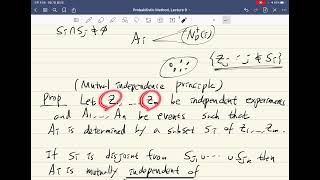 Probabilistic Method, Lecture 9
Si ∩ Sj ≠ ∅
Ai
{Zj : j ∉ Si}
(Mutual independence principle)
Prop Let Z1 ... Zm be independent experiments
and A1, ... An be events such that
Ai is determined by a subset Si of Z1, ... Zm.
If Si is disjoint from Sj1 ∪ ... ∪ Sjk then
Ai is mutually independent of